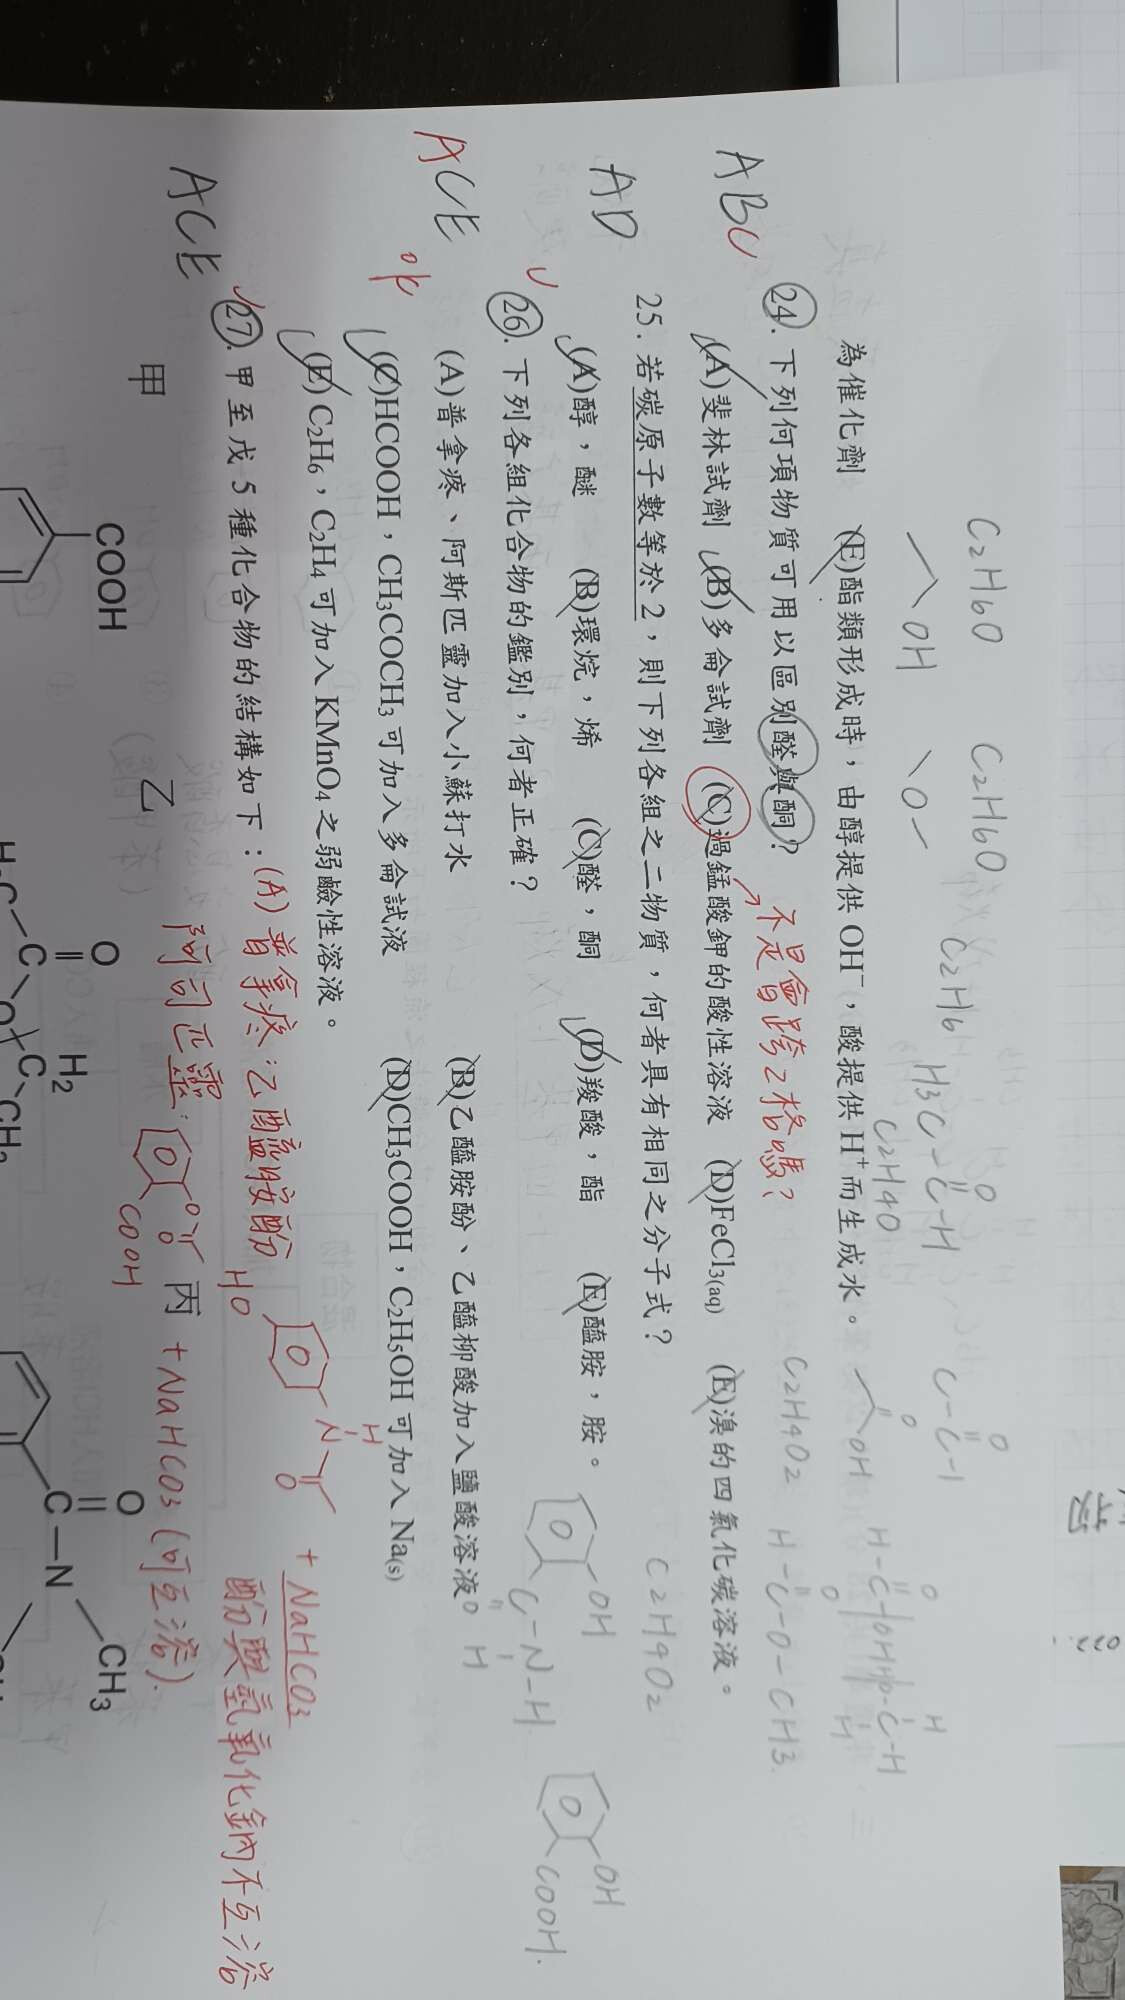 C2H6O C2H6O
OH O
C2H6
H3C-C-H
O
C2H4O
C-C-
O
OH
O
為催化劑 (E)酯類形成時，由醇提供 OH⁻，酸提供 H⁺而生成水。
ABC 24. 下列何項物質可用以區別醛與酮？ 不是會跨2格嗎? C2H4O2 H-C-O-CH3
O
(A)斐林試劑 (B)多侖試劑 (C)過錳酸鉀的酸性溶液 (D)FeCl3(aq) (E)溴的四氯化碳溶液。
AD 25. 若碳原子數等於 2，則下列各組之二物質，何者具有相同之分子式？ C2H4O2
(A)醇，醚 (B)環烷，烯 (C)醛，酮 (D)羧酸，酯 (E)醯胺，胺。
OH C-N-H O H
OH COOH.
ACE 26. 下列各組化合物的鑑別，何者正確？
ok
(A)普拿疼、阿斯匹靈加入小蘇打水 (B)乙醯胺酚、乙醯柳酸加入鹽酸溶液
(C)HCOOH，CH3COCH3 可加入多侖試液 (D)CH3COOH，C2H5OH 可加入 Na(s)
(E) C2H6，C2H4 可加入 KMnO4 之弱鹼性溶液。
ACE 27. 甲至戊 5 種化合物的結構如下：
(A) 普拿疼：乙醯胺酚 HO N H O + NaHCO3
酚與氫氧化鈉不互溶
阿司匹靈： O O COOH + NaHCO3 (可互溶).
甲 乙 丙
COOH
O H2
C O C CH3
O
C N CH3